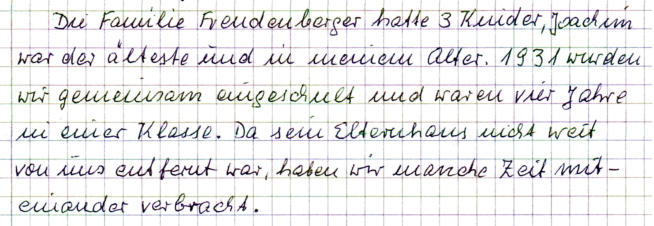 Die Familie Freudenberger hatte 3 Kinder, Joachim
war der älteste und in meinem Alter. 1931 wurden
wir gemeinsam eingeschult und waren vier Jahre
in einer Klasse. Da sein Elternhaus nicht weit
von uns entfernt war, haben wir manche Zeit mit-
einander verbracht.